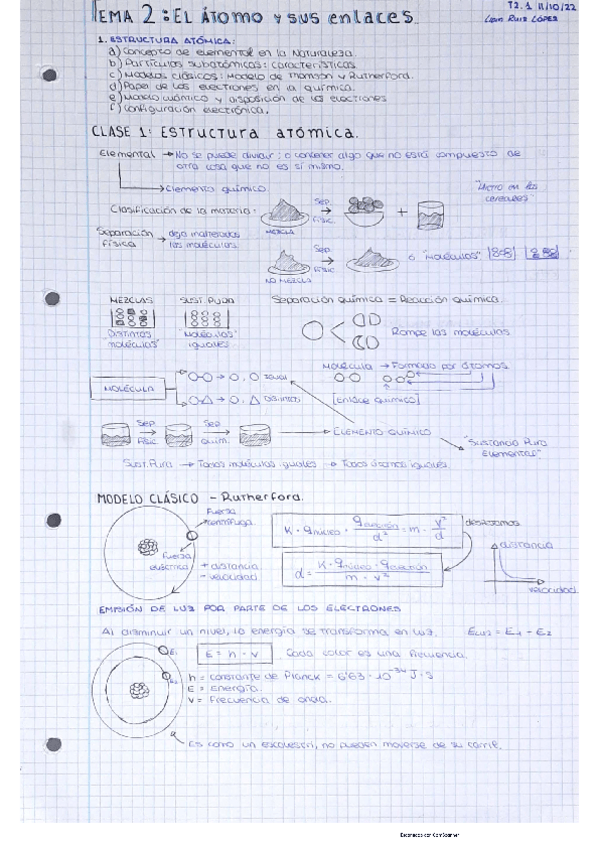 TEMA 2: EL ÁTOMO Y SUS ENLACES.
T2.1 11/10/22
RUIZ LÓPEZ
1. ESTRUCTURA ATÓMICA:
a) Concepto de elemental en la Naturaleza.
b) Partículas subatómicas: características.
c) Modelos clásicos: Modelo de Thomson y Rutherford.
d) Papel de los electrones en la química.
e) Modelo cuántico y disposición de los electrones
f) Configuración electrónica.
CLASE 1: Estructura atómica.
Elemental → No se puede dividir o contener algo que no está compuesto de
otra cosa que no es sí mismo.
Elemento químico
cereales"
Clasificación de la materia:
Sep.
Físic.
MEZCLA
Separación física → deja inalteradas
las moléculas
Sep.
Físic.
NO MEZCLA
ó "moléculas"
MEZCLAS
Distintas
"moléculas"
SUST. PURA
"Moléculas"
iguales
Separación química = Reacción química.
Rompe las moléculas
Molécula → Formada por átomos
[Enlace químico]
MOLÉCULA
IGUAL
DISTINTOS
Sep.
Físic.
Sep.
Quím.
ELEMENTO QUÍMICO
"Sustancia Pura
Elemental"
Sust. Pura → Todas moléculas iguales → Todos átomos iguales.
MODELO CLÁSICO - Rutherford.
Fuerza
centrífuga
Fuerza
eléctrica
+ distancia
- velocidad
K · q núcleo · q electrón / d² = m · v² / d
despejamos
d = K · q núcleo · q electrón / m · v²
distancia
velocidad
EMISIÓN DE LUZ POR PARTE DE LOS ELECTRONES
Al disminuir un nivel, la energía se transforma en luz. E luz = E₁ - E₂
E = h · v
Cada color es una frecuencia.
E₁
E₂
h = constante de Planck = 6'63 · 10⁻³⁴ J · s
E = Energía.
v = Frecuencia de onda.
Es como un escalextri, no pueden moverse de su carril.
Escaneado con CamScanner